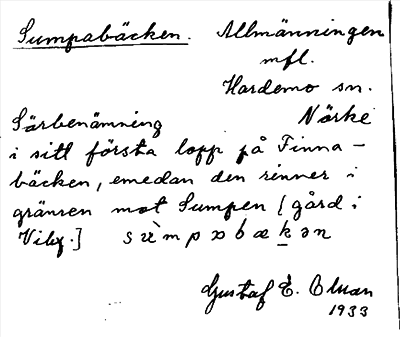 Sumpabäcken. Allmänningen
mfl.
Hardemo sn.
Särbenämning Närke
i sitt första lopp på Finna-
bäcken, emedan den rinner i
gränsen mot Sumpen [gård i
Viby.] sùmpabækən
Gustaf E. Olsson
1933